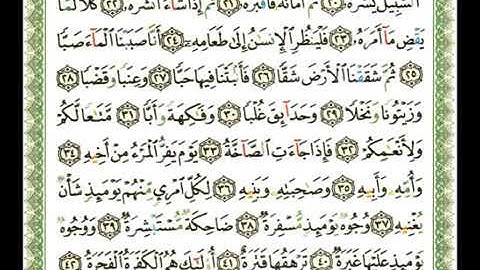 ٱلسَّبِيلَ يَسَّرَهُۥ ٢٠ ثُمَّ أَمَاتَهُۥ فَأَقۡبَرَهُۥ ٢١ ثُمَّ إِذَا شَآءَ أَنشَرَهُۥ ٢٢ كَلَّا لَمَّا
يَقۡضِ مَآ أَمَرَهُۥ ٢٣ فَلۡيَنظُرِ ٱلۡإِنسَٰنُ إِلَىٰ طَعَامِهِۦٓ ٢٤ أَنَّا صَبَبۡنَا ٱلۡمَآءَ صَبّٗا
٢٥ ثُمَّ شَقَقۡنَا ٱلۡأَرۡضَ شَقّٗا ٢٦ فَأَنۢبَتۡنَا فِيهَا حَبّٗا ٢٧ وَعِنَبٗا وَقَضۡبٗا ٢٨
وَزَيۡتُونٗا وَنَخۡلٗا ٢٩ وَحَدَآئِقَ غُلۡبٗا ٣٠ وَفَٰكِهَةٗ وَأَبّٗا ٣١ مَّتَٰعٗا لَّكُمۡ
وَلِأَنۡعَٰمِكُمۡ ٣٢ فَإِذَا جَآءَتِ ٱلصَّآخَّةُ ٣٣ يَوۡمَ يَفِرُّ ٱلۡمَرۡءُ مِنۡ أَخِيهِ ٣٤
وَأُمِّهِۦ وَأَبِيهِ ٣٥ وَصَٰحِبَتِهِۦ وَبَنِيهِ ٣٦ لِكُلِّ ٱمۡرِيٕٖ مِّنۡهُمۡ يَوۡمَئِذٖ شَأۡنٞ
يُغۡنِيهِ ٣٧ وُجُوهٞ يَوۡمَئِذٖ مُّسۡفِرَةٞ ٣٨ ضَاحِكَةٞ مُّسۡتَبۡشِرَةٞ ٣٩ وَوُجُوهٞ
يَوۡمَئِذٍ عَلَيۡهَا غَبَرَةٞ ٤٠ تَرۡهَقُهَا قَتَرَةٌ ٤١ أُوْلَٰٓئِكَ هُمُ ٱلۡكَفَرَةُ ٱلۡفَجَرَةُ ٤٢